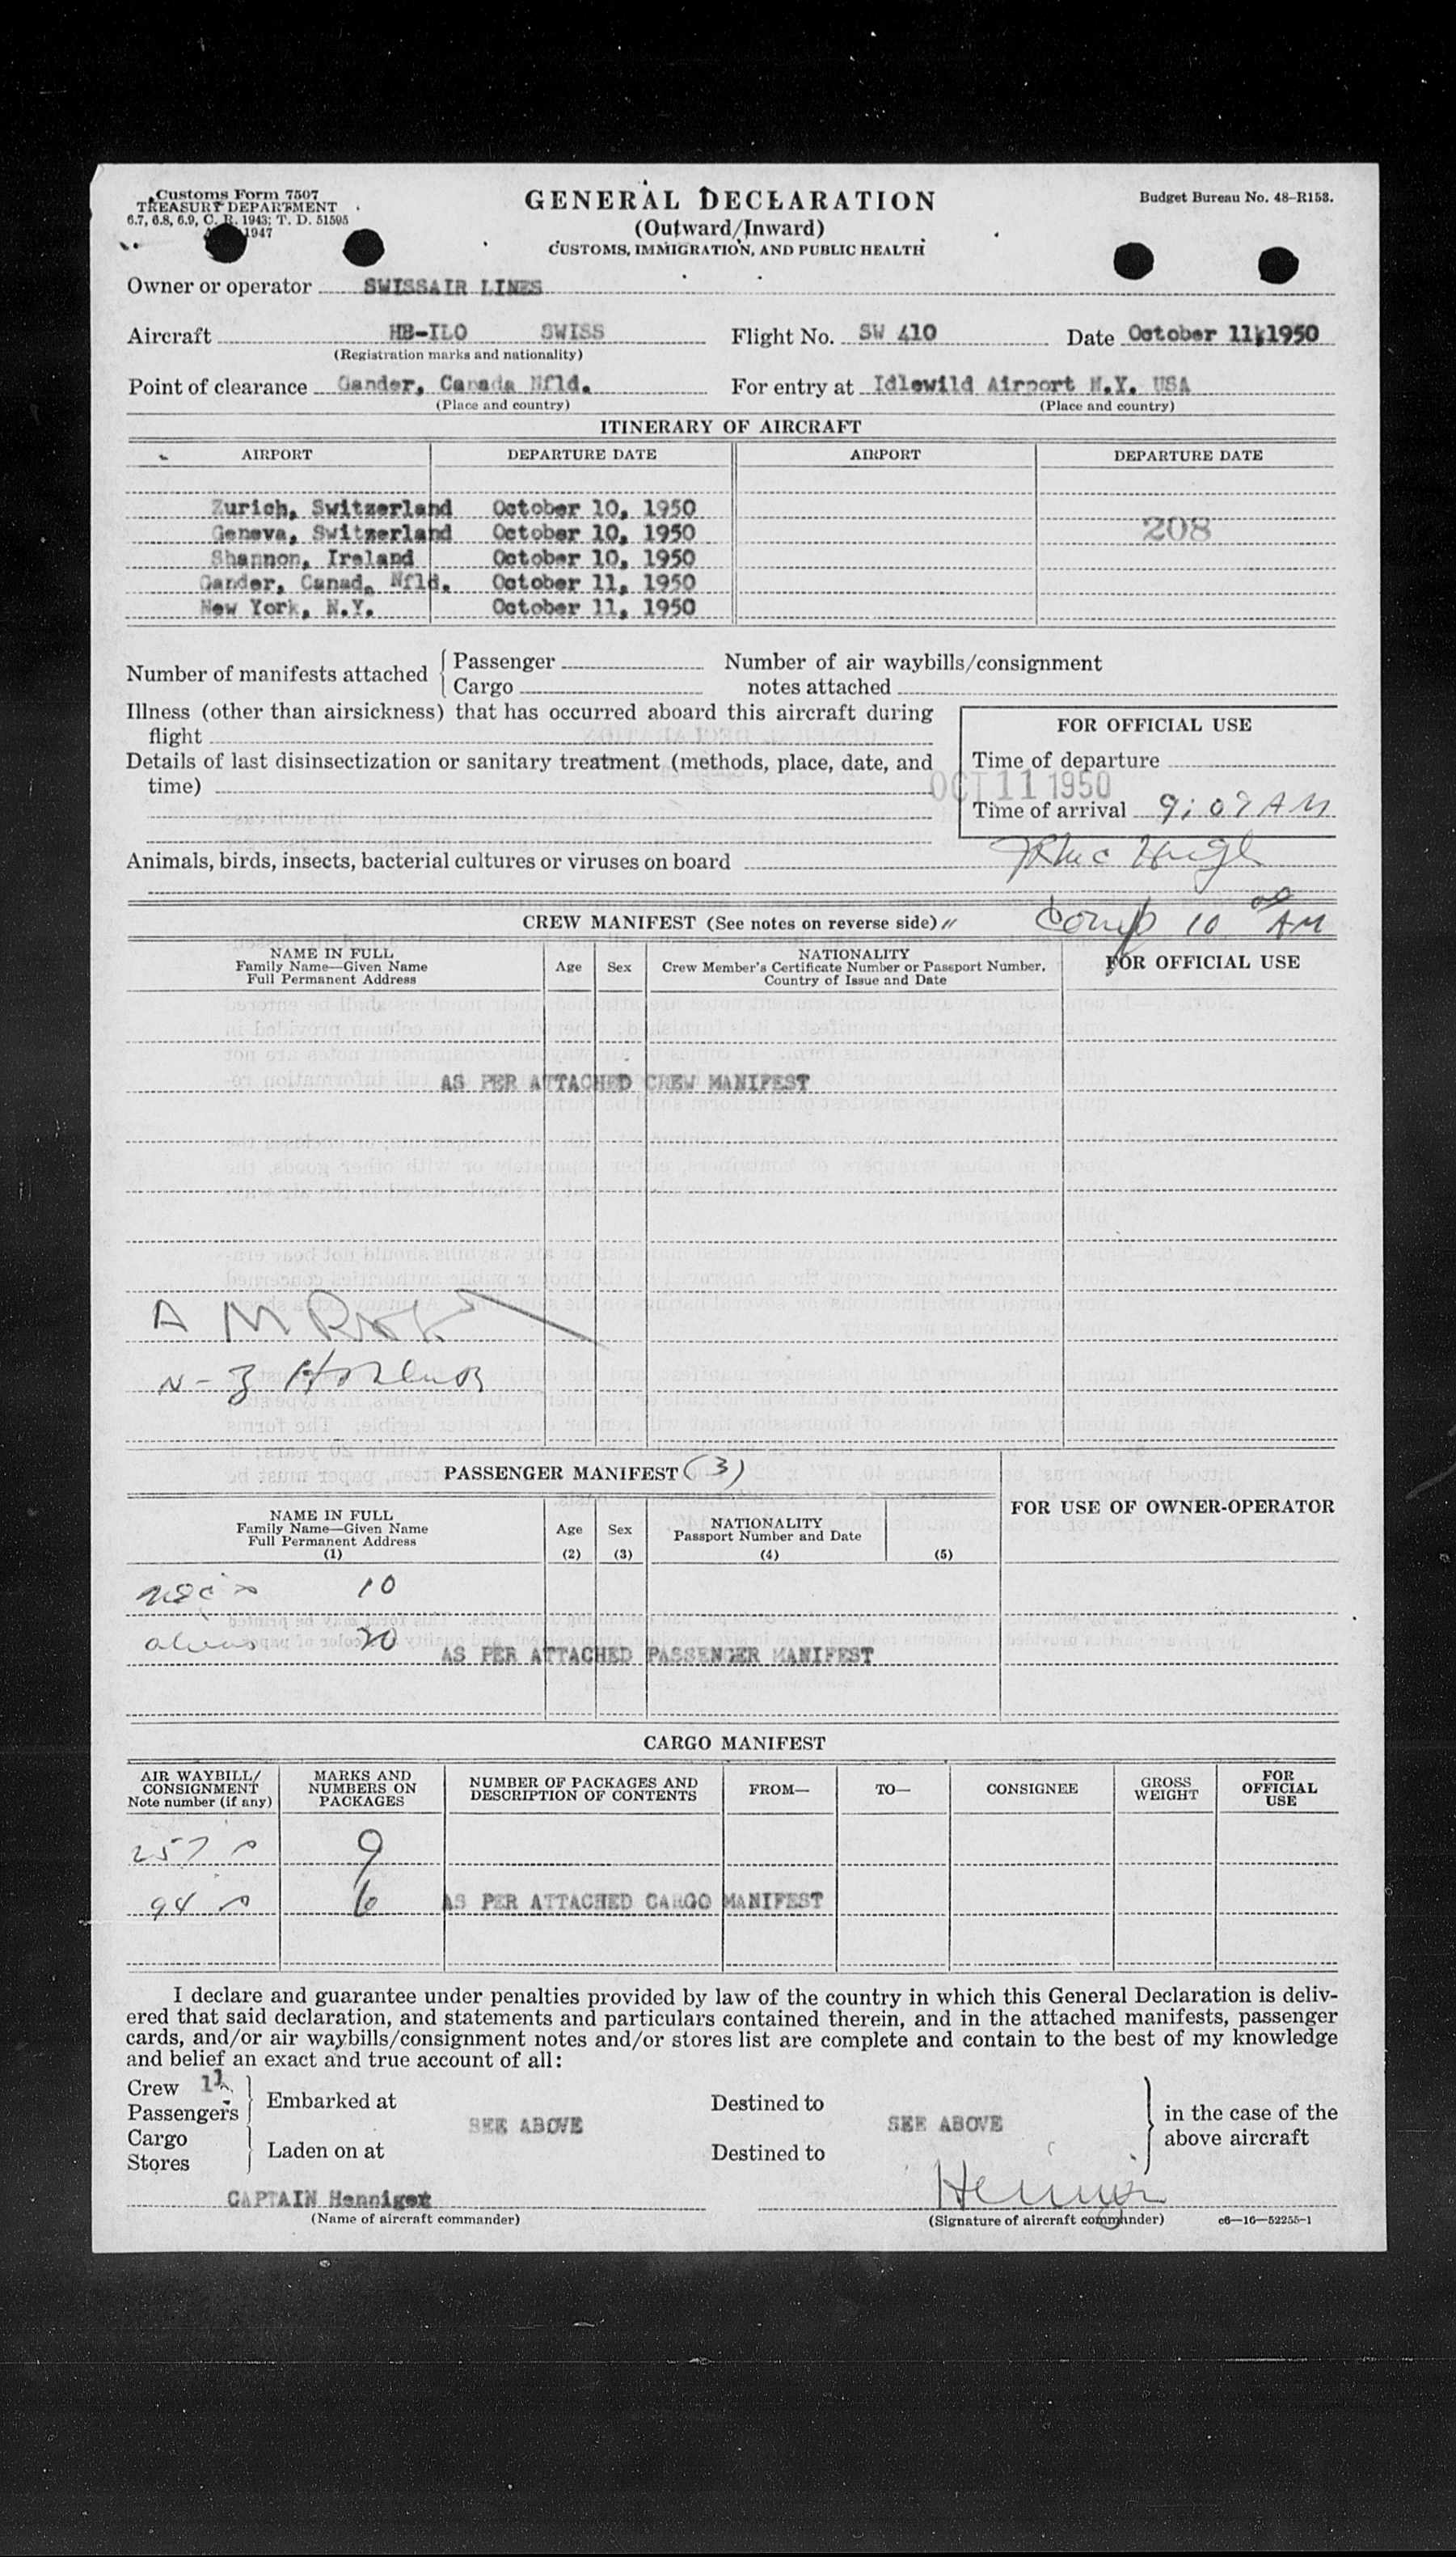 Customs Form 7507
TREASURY DEPARTMENT
6.7, 6.8, 6.9, C. R. 1943; T. D. 51595
1947
GENERAL DECLARATION
(Outward/Inward)
CUSTOMS, IMMIGRATION, AND PUBLIC HEALTH
Budget Bureau No. 48-R153.
Owner or operator SWISSAIR LINES
Aircraft HB-ILO SWISS Flight No. SW 410 Date October 11,1950
(Registration marks and nationality)
Point of clearance Gander, Canada Nfld. For entry at Idlewild Airport N.Y. USA
(Place and country) (Place and country)
ITINERARY OF AIRCRAFT
AIRPORT DEPARTURE DATE AIRPORT DEPARTURE DATE
Zurich, Switzerland October 10, 1950
Geneva, Switzerland October 10, 1950 208
Shannon, Ireland October 10, 1950
Gander, Canad, Nfld. October 11, 1950
New York, N.Y. October 11, 1950
Number of manifests attached Passenger Number of air waybills/consignment
Cargo notes attached
Illness (other than airsickness) that has occurred aboard this aircraft during
flight
FOR OFFICIAL USE
Details of last disinsectization or sanitary treatment (methods, place, date, and
time)
Time of departure
OCT 11 1950
Time of arrival 9:07 AM
Animals, birds, insects, bacterial cultures or viruses on board
CREW MANIFEST (See notes on reverse side) Comp 10 00 AM
NAME IN FULL
Family Name—Given Name
Full Permanent Address
Age Sex
NATIONALITY
Crew Member's Certificate Number or Passport Number,
Country of Issue and Date
FOR OFFICIAL USE
AS PER ATTACHED CREW MANIFEST
A M
N-
PASSENGER MANIFEST (3)
FOR USE OF OWNER-OPERATOR
NAME IN FULL
Family Name—Given Name
Full Permanent Address
(1)
Age
(2)
Sex
(3)
NATIONALITY
Passport Number and Date
(4) (5)
10
aliens 20
AS PER ATTACHED PASSENGER MANIFEST
CARGO MANIFEST
AIR WAYBILL/
CONSIGNMENT
Note number (if any)
MARKS AND
NUMBERS ON
PACKAGES
NUMBER OF PACKAGES AND
DESCRIPTION OF CONTENTS
FROM— TO— CONSIGNEE
GROSS
WEIGHT
FOR
OFFICIAL
USE
257 9
94 6 AS PER ATTACHED CARGO MANIFEST
I declare and guarantee under penalties provided by law of the country in which this General Declaration is deliv-
ered that said declaration, and statements and particulars contained therein, and in the attached manifests, passenger
cards, and/or air waybills/consignment notes and/or stores list are complete and contain to the best of my knowledge
and belief an exact and true account of all:
Crew
Passengers
Cargo
Stores
Embarked at SEE ABOVE
Laden on at
Destined to SEE ABOVE
Destined to
in the case of the
above aircraft
CAPTAIN
(Name of aircraft commander) (Signature of aircraft commander) c6—16—52255-1